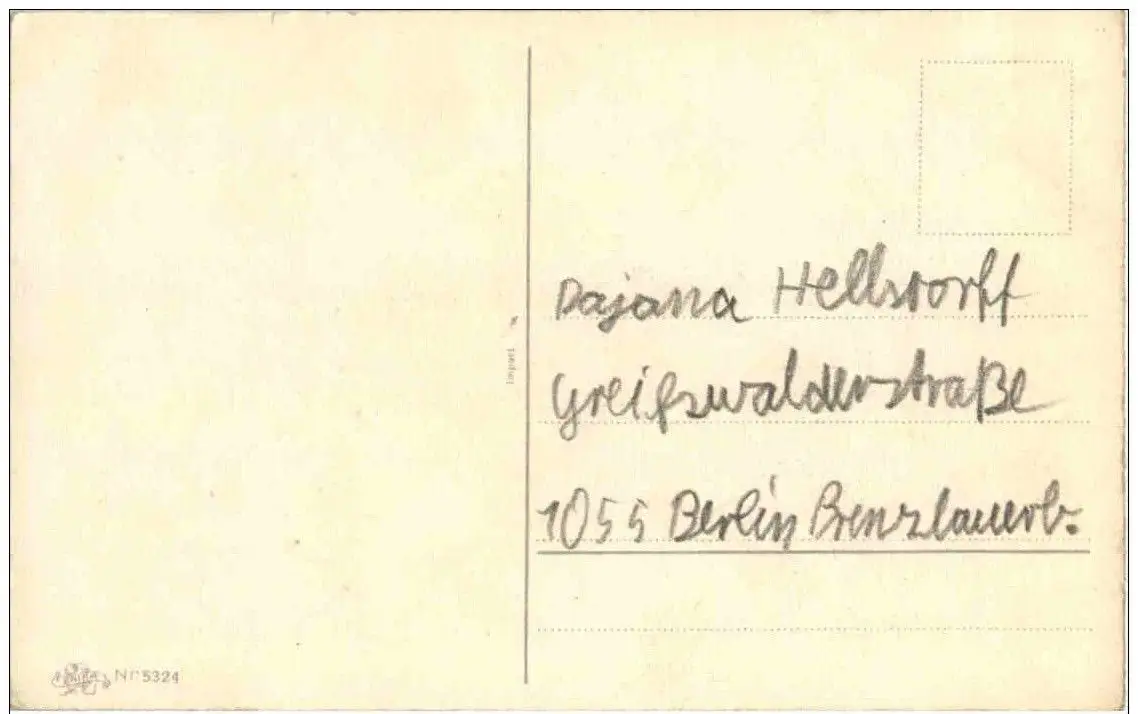 Dajana Hellsdorff
Greifswalderstraße
1055 Berlin Prenzlauerb.
Import
Nr 5324